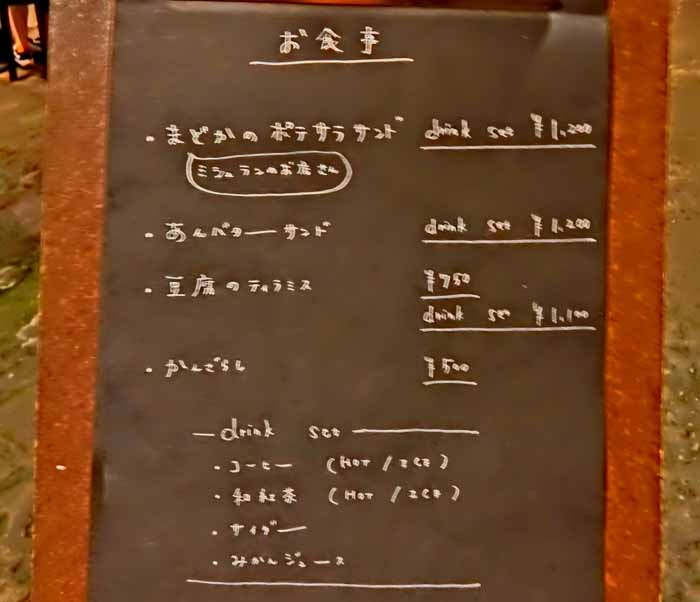 お食事
・まどかの ポテサラサンド drink set ¥1,200
ミシュランのお店さん
・あんバターサンド drink set ¥1,200
・豆腐のティラミス ¥750
drink set ¥1,100
・かんざらし ¥500
drink set
・コーヒー (HOT / ICE)
・和紅茶 (HOT / ICE)
・サイダー
・みかんジュース